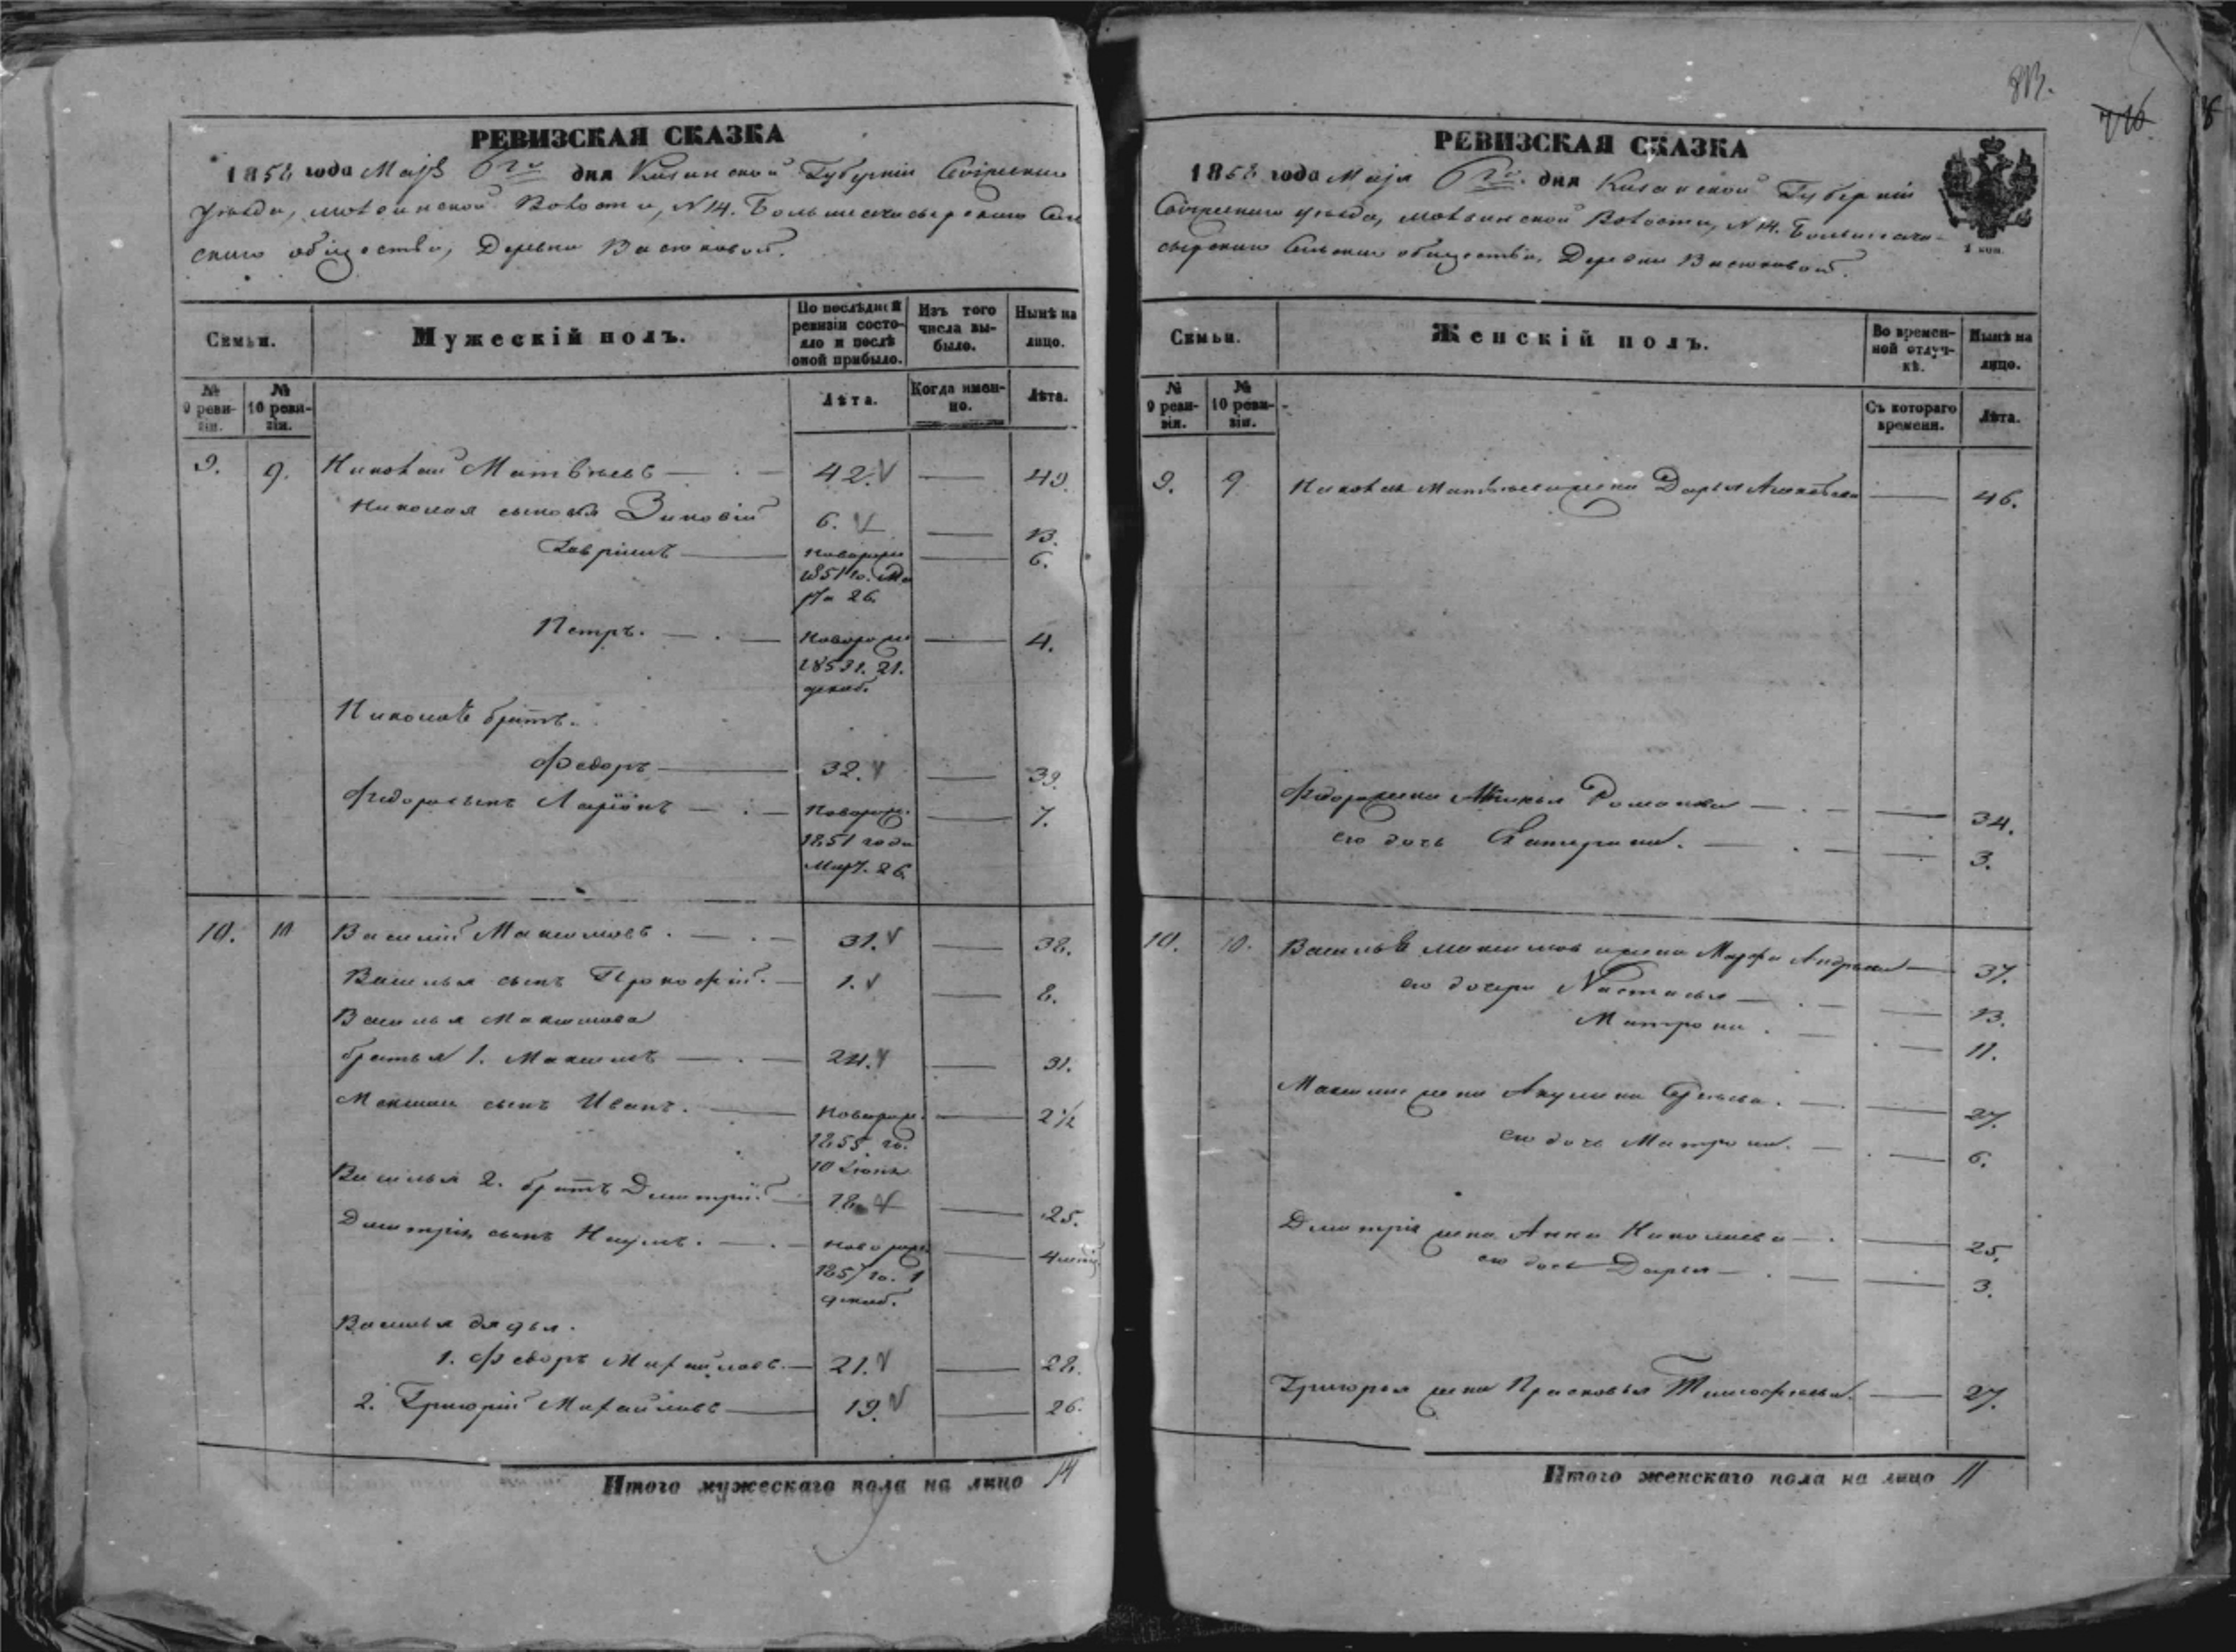 РЕВИЗСКАЯ СКАЗКА
1858 года Маія 6го дня Казанской Губерніи Свіяжскаго
уѣзда, Волости, N 14.
скаго общества, Деревни Васюковой.
Семьи.
Мужескій полъ.
По послѣдней ревизіи состояло и послѣ оной прибыло.
Изъ того числа выбыло.
Нынѣ на лицо.
№ 9 ревизіи.
№ 10 ревизіи.
Лѣта.
Когда именно.
Лѣта.
9. 9. Николай Матвѣевъ 42. 49.
Николая сыновья Зиновій 6. 13.
Гаврілъ Новорож 6.
1851 го. Ма
рта 26.
Петръ. Новорож 4.
1853 г. 21.
декаб.
Николая братъ.
Федоръ 32. 39.
Федора сынъ Ларіонъ Новорож. 7.
1851 года
Март. 26.
10. 10 Василій Максимовъ. 31. 38.
Василья сынъ Прокофій. 1. 8.
Василья Максимова
братья 1. Максимъ 24. 31.
Максима сынъ Иванъ. Новорож. 2 1/2
1855 го.
10 Іюня
Василья 2. братъ Дмитрій. 18. 25.
Дмитрія сынъ Наумъ. Новорож
1857 го. 1
декаб.
Василья дядья.
1. Федоръ Михайловъ. 21. 28.
2. Григорій Михайловъ 19. 26.
Итого мужескаго пола на лицо 14
813.
716.
РЕВИЗСКАЯ СКАЗКА
1858 года Маія 6го. дня Казанской Губерніи
Свіяжскаго уѣзда, Волости, N 14.
Сельскаго общества, Деревни Васюковой.
1 коп.
Семьи.
Женскій полъ.
Во временной отлучкѣ.
Нынѣ на лицо.
№ 9 ревизіи.
№ 10 ревизіи.
Съ котораго времени.
Лѣта.
9. 9 Николая Матвѣева жена Дарья 46.
Федора жена Романова 34.
его дочь Катерина. 3.
10. 10. Василья Максимова жена Марфа Андреева 37.
его дочери Настасья 13.
Матрона. 11.
Максима жена Акулина 27.
его дочь Матрона. 6.
Дмитрія жена Анна Николаева 25.
его дочь Дарья 3.
Григорья жена Прасковья Тимофеева. 27.
Итого женскаго пола на лицо 11